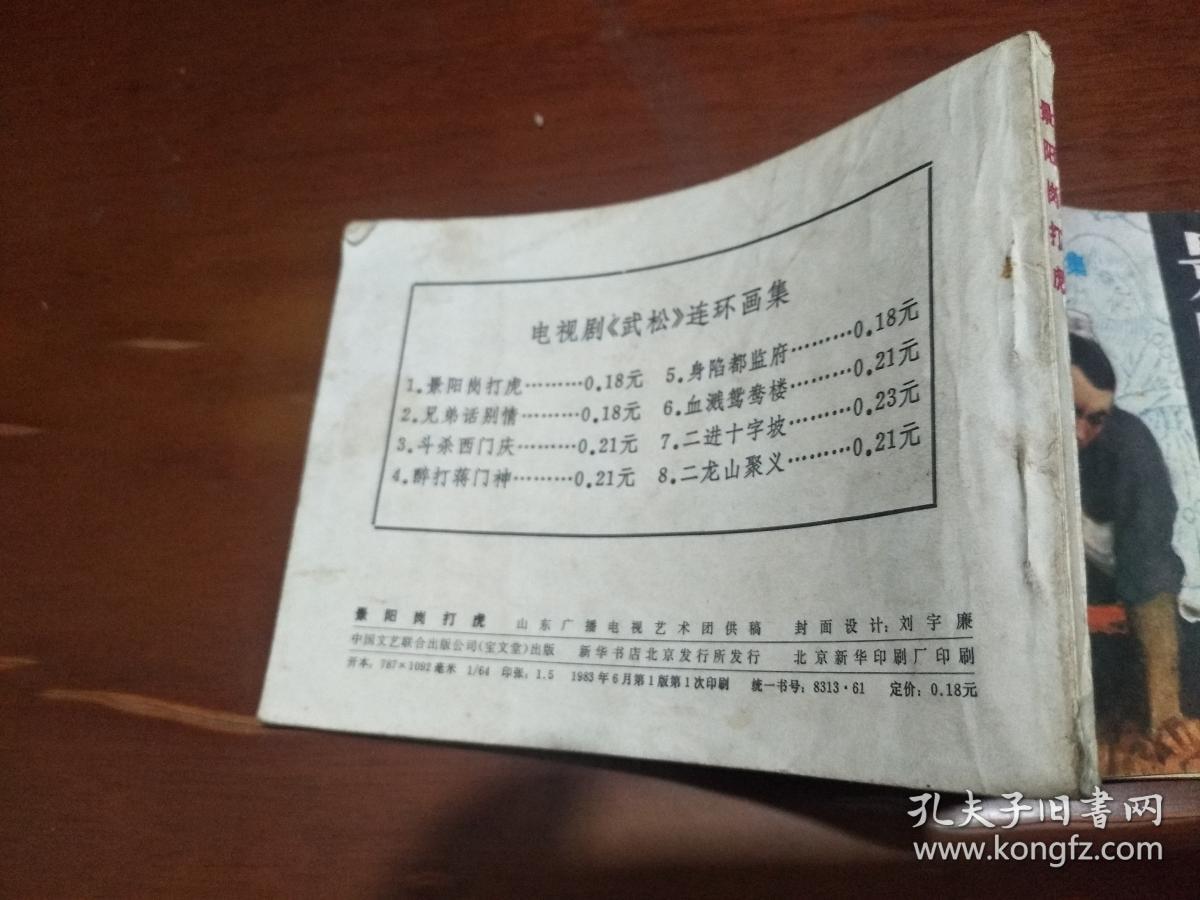 电视剧《武松》连环画集
1.景阳岗打虎………0.18元
2.兄弟话别情………0.18元
3.斗杀西门庆………0.21元
4.醉打蒋门神………0.21元
5.身陷都监府………0.18元
6.血溅鸳鸯楼………0.21元
7.二进十字坡………0.23元
8.二龙山聚义………0.21元
景阳岗打虎 山东广播电视艺术团供稿 封面设计:刘宇廉
中国文艺联合出版公司(宝文堂)出版 新华书店北京发行所发行 北京新华印刷厂印刷
开本:787×1092毫米 1/64 印张:1.5 1983年6月第1版第1次印刷 统一书号:8313·61 定价:0.18元
景阳岗打虎
集
孔夫子旧書网
www.kongfz.com